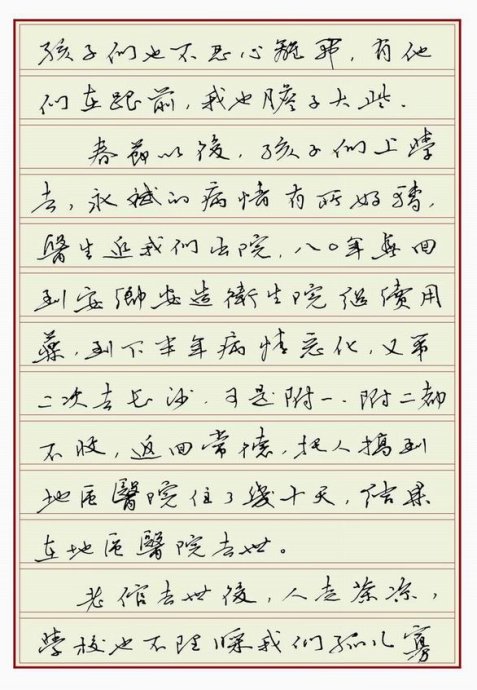 孩子们也不忍心離開，有他
们在跟前，我也胆子大些．
春節以後，孩子们上學
去，永斌的病情有所好轉，
醫生迫我们出院，八〇年無回
到安鄉安造衛生院繼續用
藥，到下半年病情惡化，又第
二次去长沙，可是附一．附二都
不收，返回常德，托人搞到
地区醫院住了幾十天，结果
在地区醫院去世。
老倌去世後，人走茶凉，
學校也不理睬我们孤儿寡